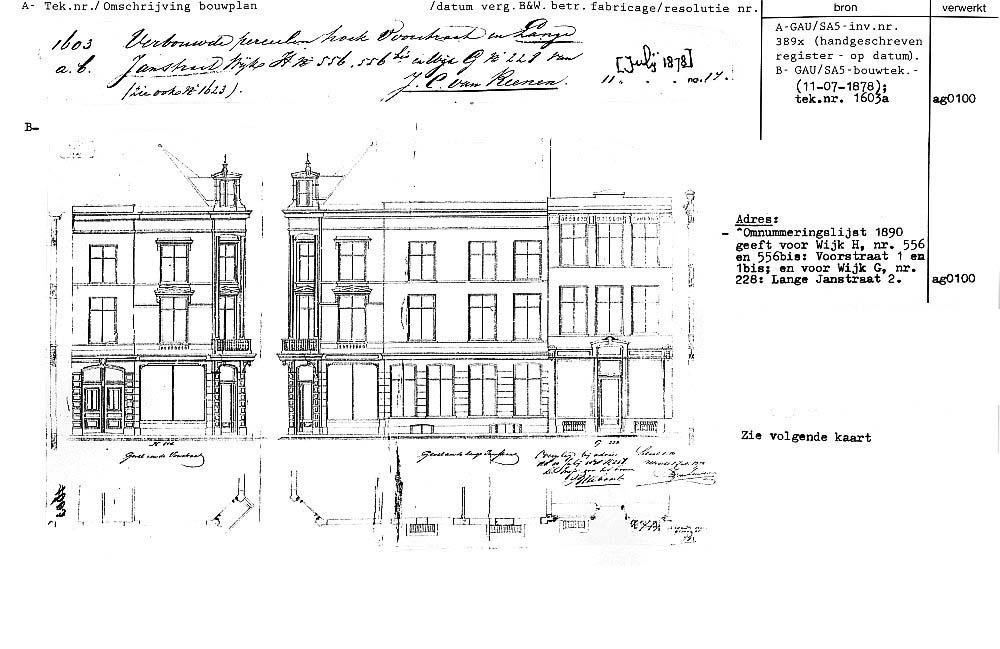 A- Tek.nr./ Omschrijving bouwplan /datum verg.B&W. betr. fabricage/resolutie nr. bron verwerkt
1603 Verbouwde perceelen hoek Voorstraat en Lange
a.b. Janstraat Wijks H No 556, 556 bis en Wijk G No 228 van
(zie ook No 1623). J. C. van Reenen.
[July 1878]
11 " " no. 17.
A-GAU/SA5-inv.nr.
389x (handgeschreven
register - op datum).
B- GAU/SA5-bouwtek.-
(11-07-1878);
tek.nr. 1603a ag0100
B-
Adres:
- "Omnummeringslijst 1890
geeft voor Wijk H, nr. 556
en 556bis: Voorstraat 1 en
1bis; en voor Wijk G, nr.
228: Lange Janstraat 2. ag0100
Zie volgende kaart
H 556
G 228
Gevel aan de Voorstraat
Gevel aan de Lange Janstraat